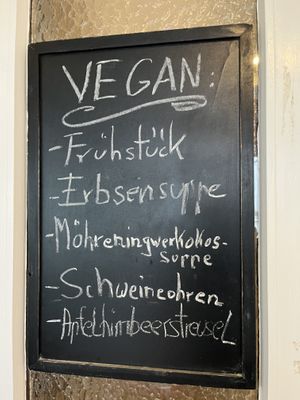 VEGAN:
- Frühstück
- Erbsensuppe
- Möhreningwerkokos-
suppe
- Schweineohren
- Apfelhimbeerstreusel